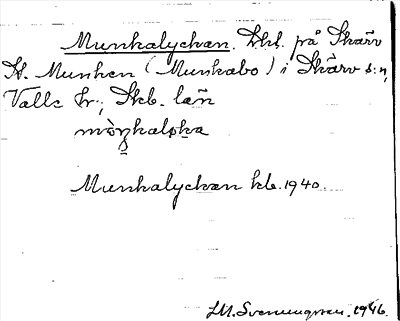 Munkalyckan. Lht. på Skärv
St. Munken (Munkabo) i Skärv s:n,
Valle hr., Skb. län
Munkalyckan hb. 1940.
LM. Svenungsson. 1946.